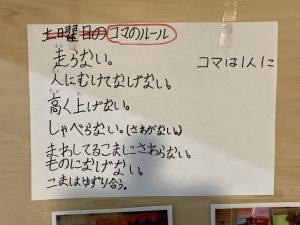 土曜日の コマのルール
走らない。
人にむけてなげない。
高く上げない。
しゃべらない。(さわがない。)
まわしてるこまにさわらない。
ものになげない。
こまはゆずり合う。
コマは1人に